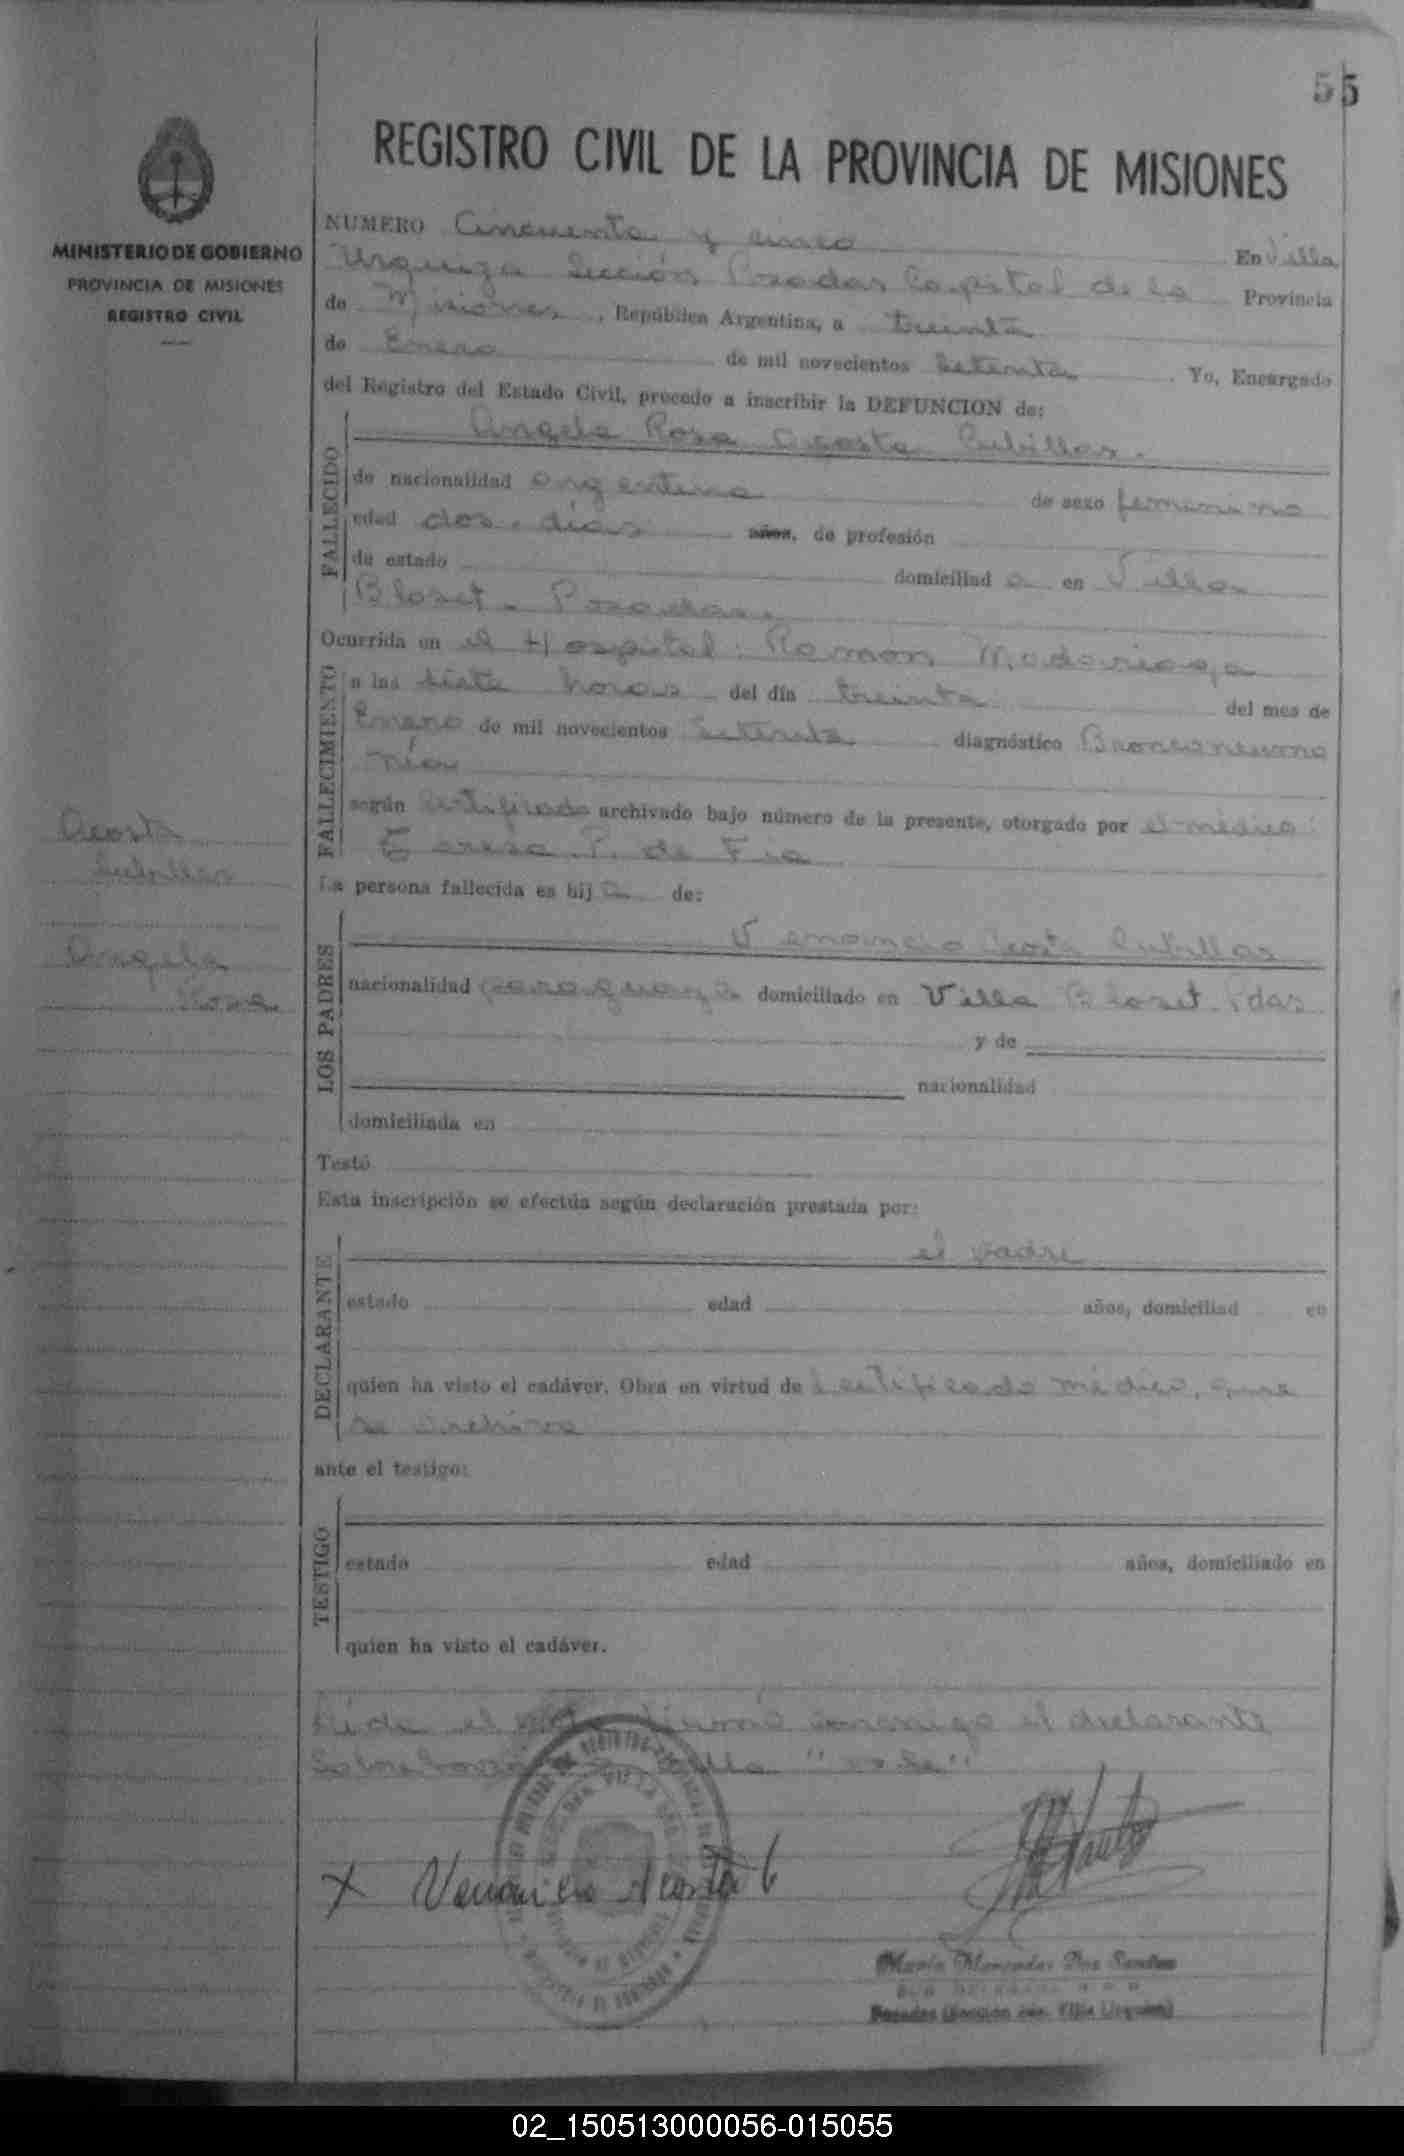 55
REGISTRO CIVIL DE LA PROVINCIA DE MISIONES
MINISTERIO DE GOBIERNO
PROVINCIA DE MISIONES
REGISTRO CIVIL
NUMERO Cincuenta y cinco En Villa
Urquiza Sección Posadas Capital de la Provincia
de Misiones, República Argentina, a treinta
de Enero de mil novecientos setenta. Yo, Encargado
del Registro del Estado Civil, procedo a inscribir la DEFUNCION de:
Angela Rosa Acosta Cubillas.
FALLECIDO
de nacionalidad argentina de sexo femenino
edad dos días años, de profesión
de estado domiciliad a en Villa
Bloset - Posadas.
Ocurrida en el Hospital Ramón Madariaga
FALLECIMIENTO
a las siete horas del día treinta del mes de
Enero de mil novecientos setenta diagnóstico Bronconeumo
nía
según certificado archivado bajo número de la presente, otorgado por el médico:
Teresa P. de Fia
La persona fallecida es hij a de:
Acosta
Cubillas
Angela
Rosa
LOS PADRES
Venancio Acosta Cubillas
nacionalidad paraguaya domiciliado en Villa Bloset. Pdas
y de
nacionalidad
domiciliada en
Testó
Esta inscripción se efectúa según declaración prestada por:
DECLARANTE
el padre
estado edad años, domiciliad en
quien ha visto el cadáver. Obra en virtud de certificado médico, que
se archiva
ante el testigo:
TESTIGO
estado edad años, domiciliado en
quien ha visto el cadáver.
Leída el acta firmó conmigo el declarante
"vale"
x Venancio Acosta C
María Mercedes Dos Santos
Posadas (Sección Villa Urquiza)
02_150513000056-015055